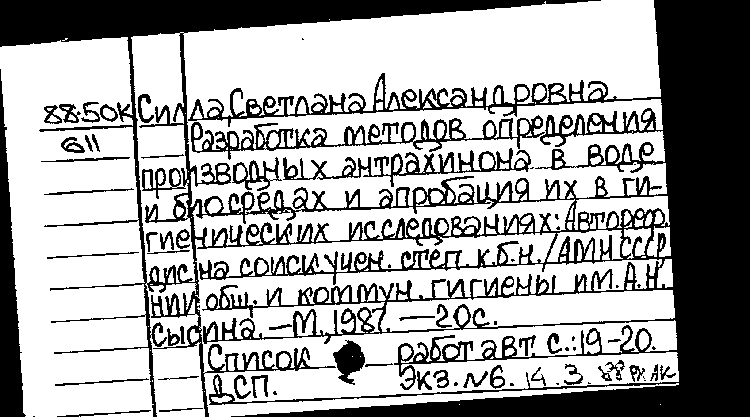 88-50К Силла, Светлана Александровна.
611 Разработка методов определения
производных антрахинона в воде
и биосредах и апробация их в ги-
гиенических исследованиях: Автореф.
дис. на соиск. учен. степ. к.б.н. / АМН СССР
НИИ общ. и коммун. гигиены им. А.Н.
Сысина. — М., 1987. — 20 с.
Список работ авт. с.: 19-20.
ДСП. Экз. №6. 14.3.88